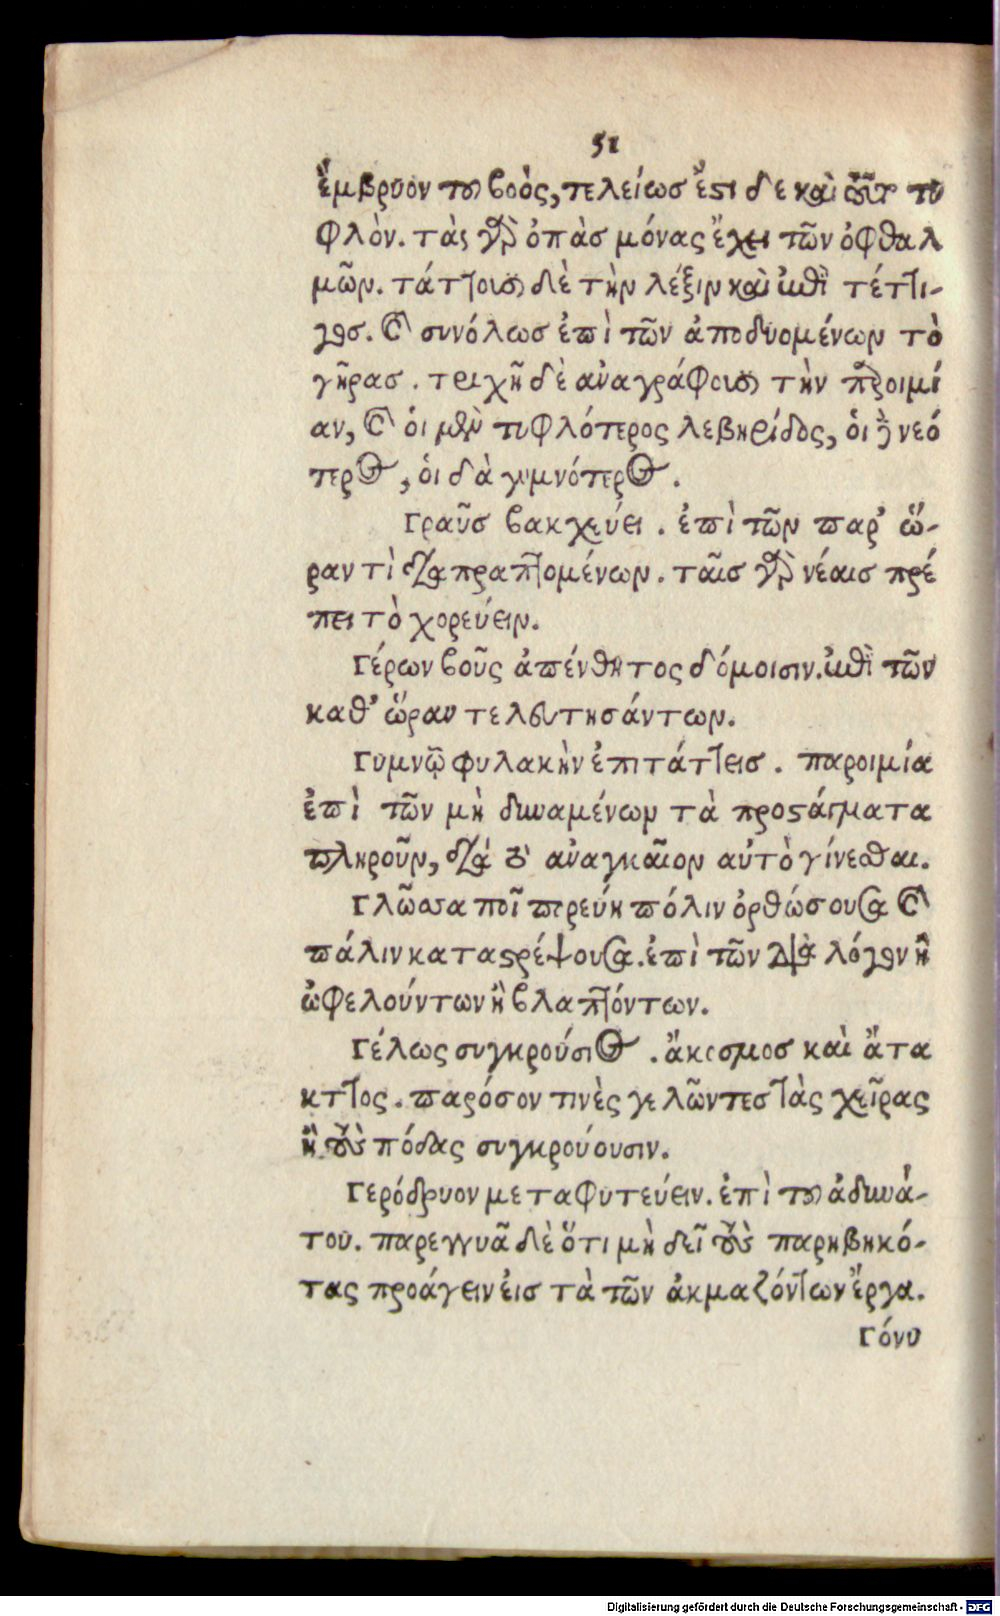 51
ἔμβρυον τοῦ βοὸς, τελείωσ ἔστι δὲ καὶ τοῦτο τυ
φλὸν. τὰς γὰρ ὀπὰσ μόνας ἔχει τῶν ὀφθαλ
μῶν. τάττουσι δὲ τὴν λέξιν καὶ ἐπὶ τέττι-
γοσ. καὶ συνόλωσ ἐπὶ τῶν ἀποδυομένων τὸ
γῆρασ. τριχῆ δὲ αναγράφουσι τὴν παροιμί
αν, καὶ ὁι μὲν τυφλότερος λεβηρίδος, ὁι δὲ νεό
τερος, ὁι δὰ γυμνότερος.
Γραῦσ βακχεύει. ἐπὶ τῶν παρ' ὥ-
ραν τὶ διαπραττομένων. ταῖσ γὰρ νέαισ πρέ
πει τὸ χορεύειν.
Γέρων βοῦς ἀπένθητος δόμοισιν. ἐπὶ τῶν
καθ' ὥραν τελευτησάντων.
Γυμνῷ φυλακὴν ἐπιτάττεισ. παροιμία
ἐπὶ τῶν μὴ δυναμένων τὰ προστάγματα
πληροῦν, διὰ τὸ αναγκαῖον αὐτὸ γίνεσθαι.
Γλῶσσα ποῖ πορεύη πόλιν ὀρθώσουσα καὶ
πάλιν καταστρέψουσα. ἐπὶ τῶν διὰ λόγον ἢ
ὠφελούντων ἢ βλαπτόντων.
Γέλως συγκρούσιος. ἄκοσμοσ καὶ ἄτα
κτος. παρόσον τινὲς γελῶντεσ τὰς χεῖρας
ἢ τοὺς πόδας συγκρούουσιν.
Γερόδρυον μεταφυτεύειν. ἐπὶ τοῦ ἀδυνά-
του. παρεγγυᾶ δὲ ὅτι μὴ δεῖ τοὺς παρηβηκό-
τας προάγειν ἐισ τὰ τῶν ἀκμαζόντων ἔργα.
Γόνυ
Digitalisierung gefördert durch die Deutsche Forschungsgemeinschaft - DFG